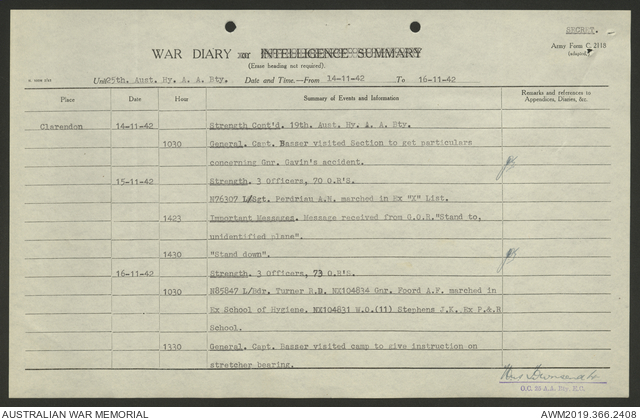 SECRET.
WAR DIARY or INTELLIGENCE SUMMARY
Army Form C. 2118
(adapted)
(Erase heading not required).
Unit 25th. Aust. Hy. A. A. Bty. Date and Time.—From 14-11-42 To 16-11-42
Place Date Hour Summary of Events and Information Remarks and references to Appendices, Diaries, &c.
Clarendon 14-11-42 Strength Cont'd. 19th. Aust. Hy. A. A. Bty.
1030 General. Capt. Basser visited Section to get particulars
concerning Gnr. Gavin's accident.
15-11-42 Strength. 3 Officers, 70 O.R'S.
N76307 L/Sgt. Perdriau A.N. marched in Ex "X" List.
1423 Important Messages. Message received from G.O.R."Stand to,
unidentified plane".
1430 "Stand down".
16-11-42 Strength. 3 Officers, 73 O.R'S.
1030 N85847 L/Bdr. Turner R.D. NX104834 Gnr. Foord A.F. marched in
Ex School of Hygiene. NX104831 W.O.(11) Stephens J.K. Ex P.& R
School.
1330 General. Capt. Basser visited camp to give instruction on
stretcher bearing.
O.C. 25 A.A. Bty.
AUSTRALIAN WAR MEMORIAL AWM2019.366.2408